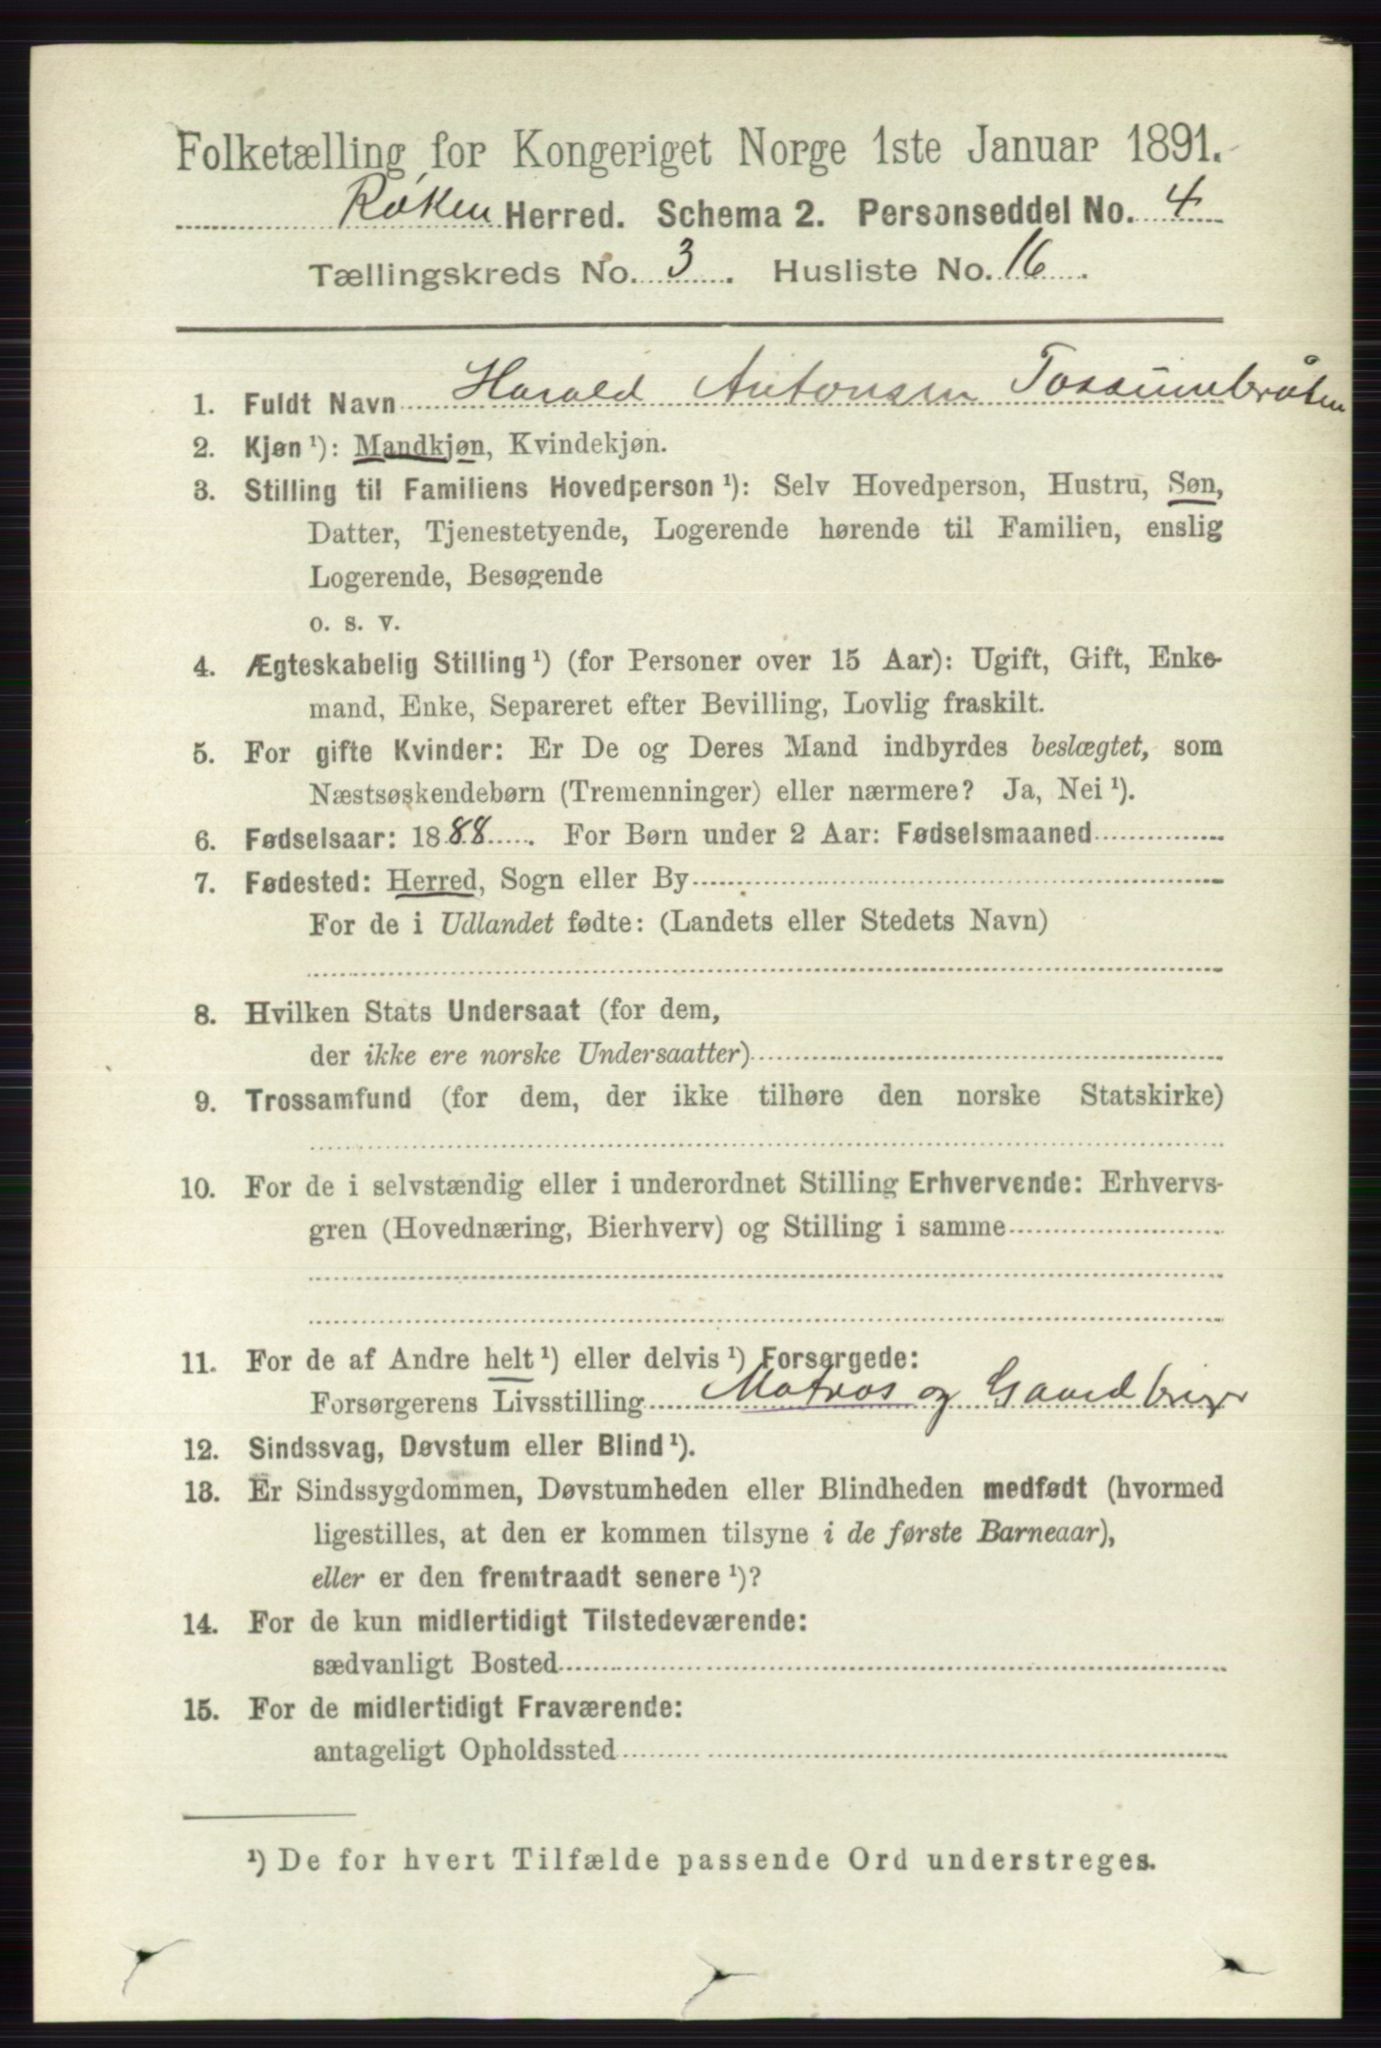 Folketælling for Kongeriget Norge 1ste Januar 1891.
Røken Herred. Schema 2. Personseddel No. 4
Tællingskreds No. 3. Husliste No. 16.
1. Fuldt Navn Harald Antonsen
2. Kjøn ¹): Mandkjøn, Kvindekjøn.
3. Stilling til Familiens Hovedperson ¹): Selv Hovedperson, Hustru, Søn,
Datter, Tjenestetyende, Logerende hørende til Familien, enslig
Logerende, Besøgende
o. s. v.
4. Ægteskabelig Stilling ¹) (for Personer over 15 Aar): Ugift, Gift, Enke-
mand, Enke, Separeret efter Bevilling, Lovlig fraskilt.
5. For gifte Kvinder: Er De og Deres Mand indbyrdes beslægtet, som
Næstsøskendebørn (Tremenninger) eller nærmere? Ja, Nei ¹).
6. Fødselsaar: 1888. For Børn under 2 Aar: Fødselsmaaned
7. Fødested: Herred, Sogn eller By
For de i Udlandet fødte: (Landets eller Stedets Navn)
8. Hvilken Stats Undersaat (for dem,
der ikke ere norske Undersaatter)
9. Trossamfund (for dem, der ikke tilhøre den norske Statskirke)
10. For de i selvstændig eller i underordnet Stilling Erhvervende: Erhvervs-
gren (Hovednæring, Bierhverv) og Stilling i samme
11. For de af Andre helt ¹) eller delvis ¹) Forsørgede:
Forsørgerens Livsstilling Matros og
12. Sindssvag, Døvstum eller Blind ¹).
13. Er Sindssygdommen, Døvstumheden eller Blindheden medfødt (hvormed
ligestilles, at den er kommen tilsyne i de første Barneaar),
eller er den fremtraadt senere ¹)?
14. For de kun midlertidigt Tilstedeværende:
sædvanligt Bosted
15. For de midlertidigt Fraværende:
antageligt Opholdssted
¹) De for hvert Tilfælde passende Ord understreges.